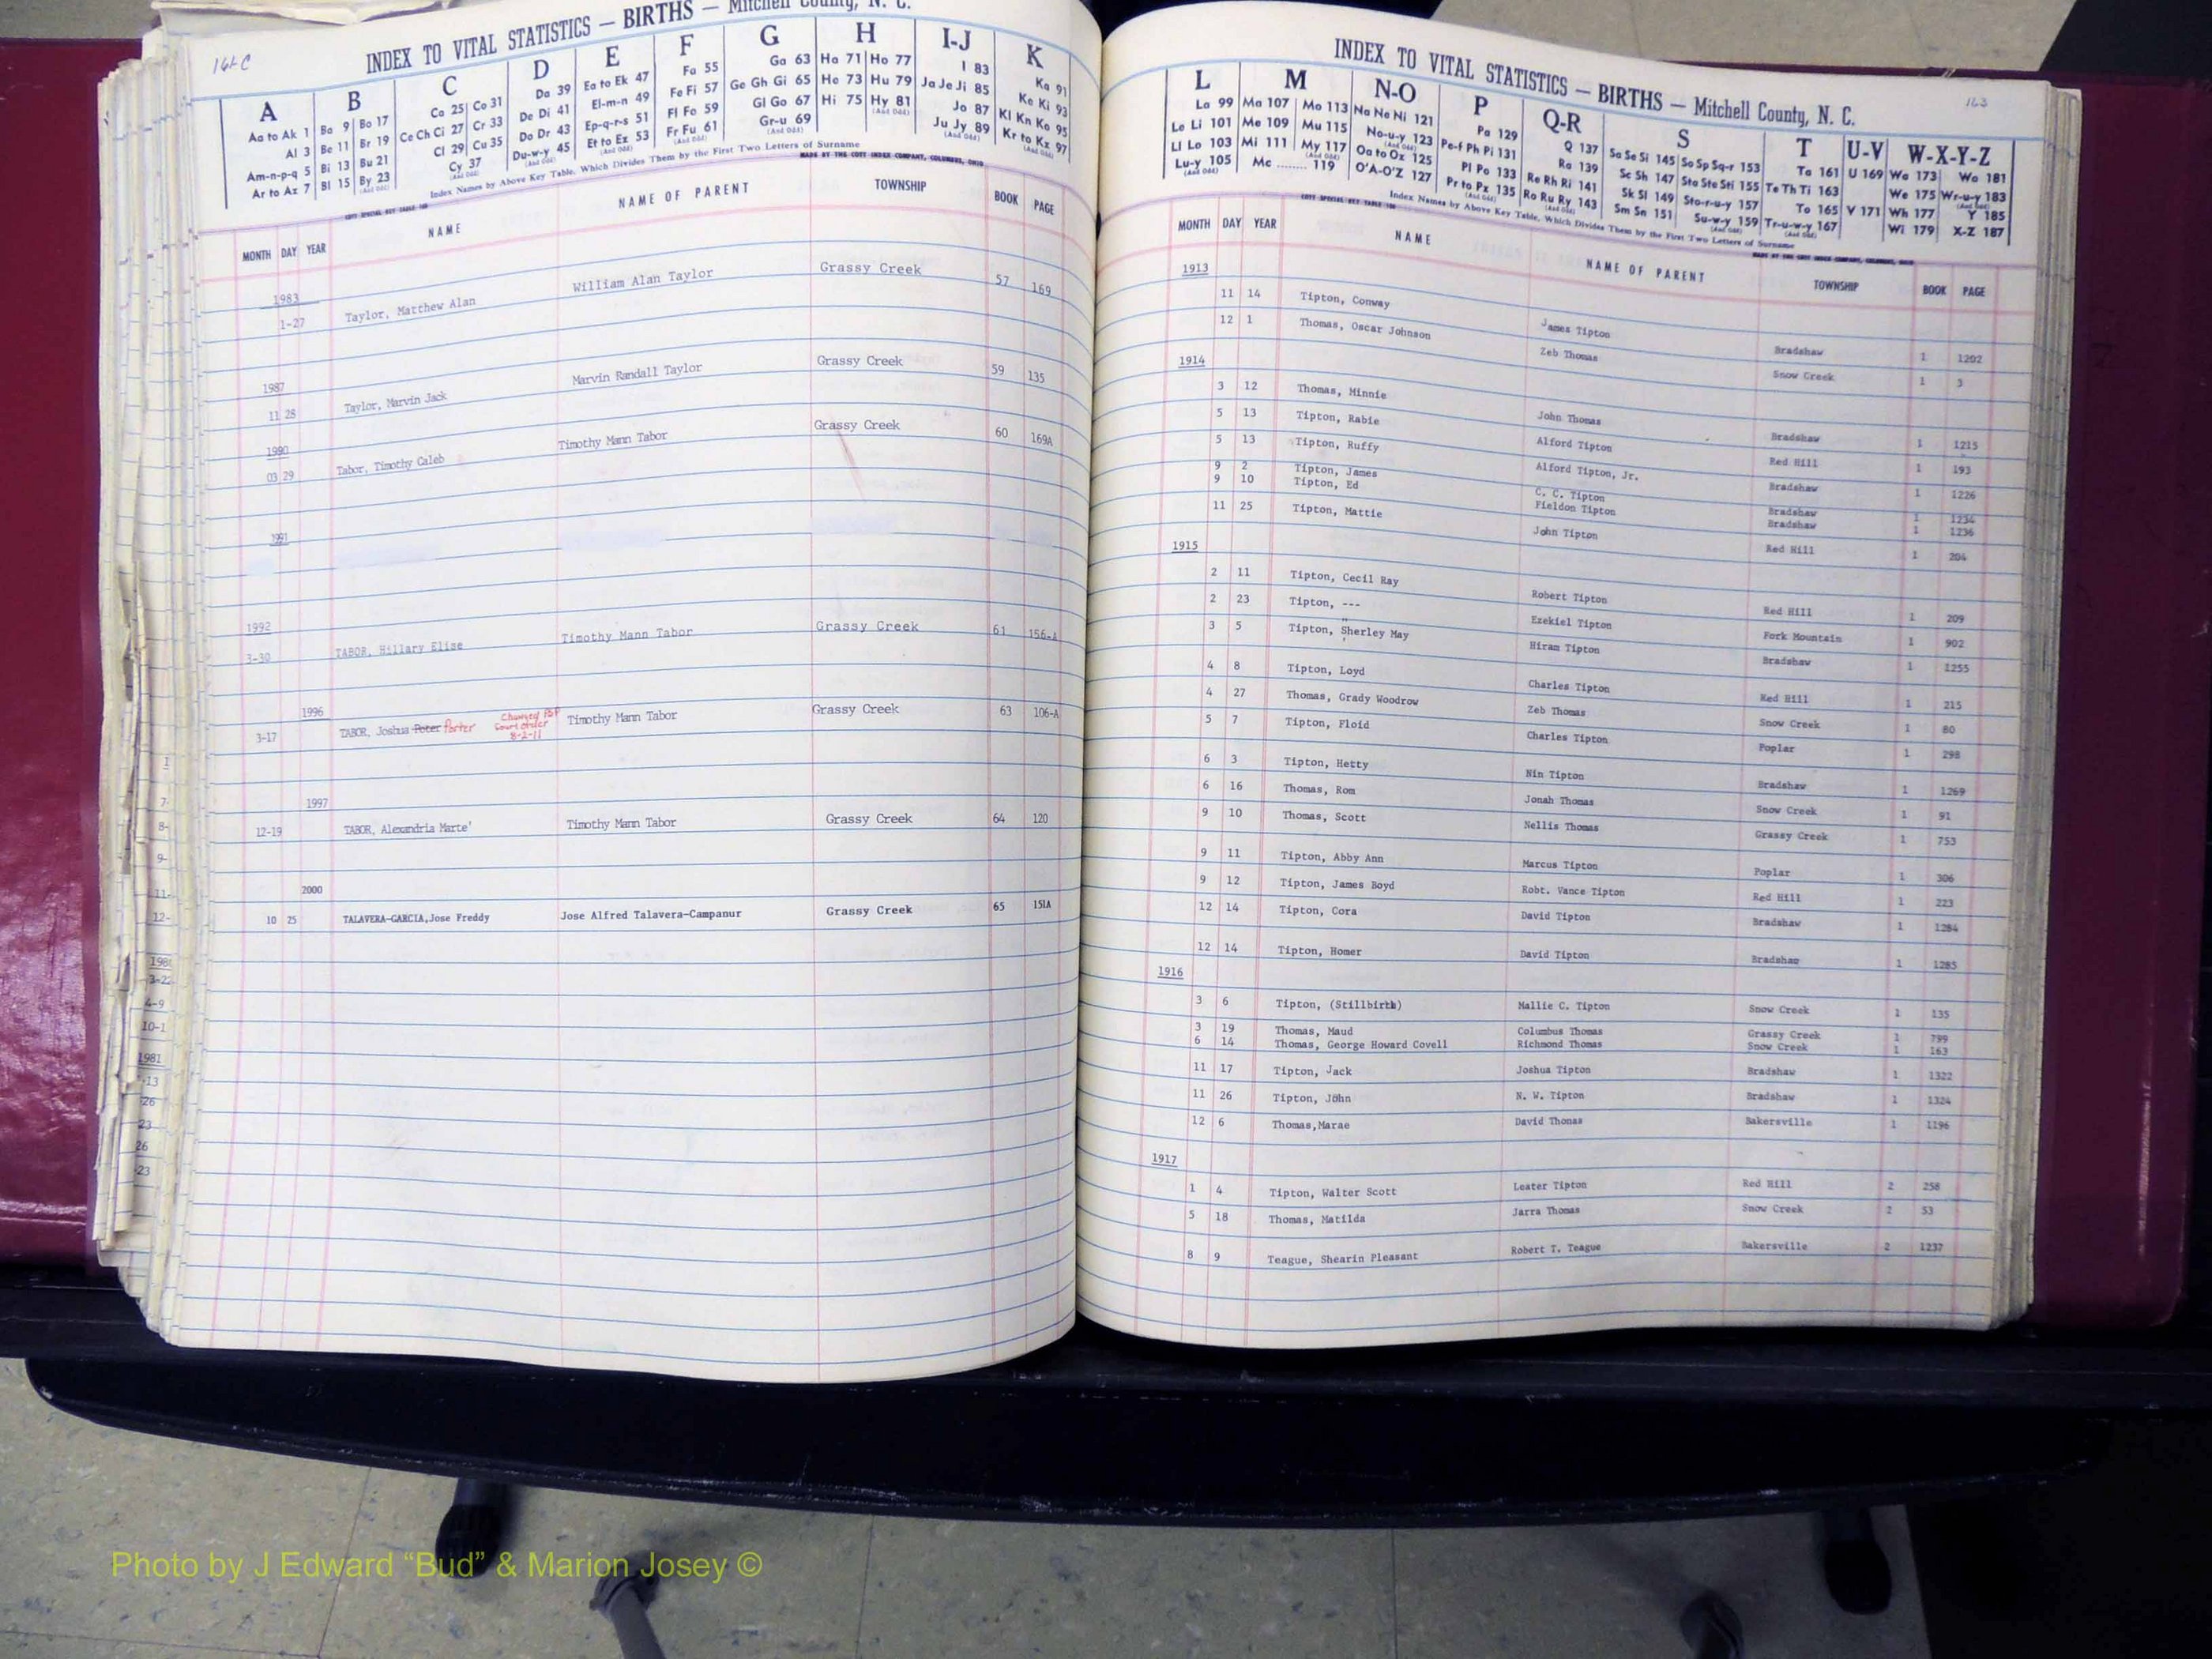 161-C
INDEX TO VITAL STATISTICS — BIRTHS — Mitchell County, N. C.
A B C D E F G H I-J K
Aa to Ak 1 Ba 9 Bo 17 Ca 25 Co 31 Da 39 Ea to Ek 47 Fa 55 Ga 63 Ha 71 Ho 77 I 83 Ka 91
Al 3 Be 11 Br 19 Ce Ch Ci 27 Cr 33 De Di 41 El-m-n 49 Fe Fi 57 Ge Gh Gi 65 He 73 Hu 79 Ja Je Ji 85 Ke Ki 93
Am-n-p-q 5 Bi 13 Bu 21 Cl 29 Cu 35 Do Dr 43 Ep-q-r-s 51 Fl Fo 59 Gl Go 67 Hi 75 Hy 81 Jo 87 Kl Kn Ko 95
Ar to Az 7 Bl 15 By 23 Cy 37 Du-w-y 45 Et to Ez 53 Fr Fu 61 Gr-u 69 Ju Jy 89 Kr to Kz 97
Index Names by Above Key Table, Which Divides Them by the First Two Letters of Surname
MADE BY THE COTT INDEX COMPANY, COLUMBUS, OHIO
COTT SPECIAL KEY TABLE 188
MONTH DAY YEAR NAME NAME OF PARENT TOWNSHIP BOOK PAGE
1983
1-27 Taylor, Matthew Alan William Alan Taylor Grassy Creek 57 169
1987
11 28 Taylor, Marvin Jack Marvin Randall Taylor Grassy Creek 59 135
1990
03 29 Tabor, Timothy Caleb Timothy Mann Tabor Grassy Creek 60 169A
1991
1992
3-30 TABOR, Hillary Elise Timothy Mann Tabor Grassy Creek 61 156-A
1996
3-17 TABOR, Joshua Peter Porter Changed per Court order 8-2-11 Timothy Mann Tabor Grassy Creek 63 106-A
1997
12-19 TABOR, Alexandria Marte' Timothy Mann Tabor Grassy Creek 64 120
2000
10 25 TALAVERA-GARCIA,Jose Freddy Jose Alfred Talavera-Campanur Grassy Creek 65 151A
163
INDEX TO VITAL STATISTICS — BIRTHS — Mitchell County, N. C.
L M N-O P Q-R S T U-V W-X-Y-Z
La 99 Ma 107 Mo 113 Na Ne Ni 121 Pa 129 Q 137 Sa Se Si 145 So Sp Sq-r 153 Ta 161 U 169 Wa 173 Wo 181
Le Li 101 Me 109 Mu 115 No-u-y 123 Pe-f Ph Pi 131 Ra 139 Sc Sh 147 Sta Ste Sti 155 Te Th Ti 163 We 175 Wr-u-y 183
Ll Lo 103 Mi 111 My 117 Oa to Oz 125 Pl Po 133 Re Rh Ri 141 Sk Sl 149 Sto-r-u-y 157 To 165 V 171 Wh 177 Y 185
Lu-y 105 Mc 119 O'A-O'Z 127 Pr to Pz 135 Ro Ru Ry 143 Sm Sn 151 Su-w-y 159 Tr-u-w-y 167 Wi 179 X-Z 187
Index Names by Above Key Table, Which Divides Them by the First Two Letters of Surname
MADE BY THE COTT INDEX COMPANY, COLUMBUS, OHIO
MONTH DAY YEAR NAME NAME OF PARENT TOWNSHIP BOOK PAGE
1913
11 14 Tipton, Conway James Tipton Bradshaw 1 1202
12 1 Thomas, Oscar Johnson Zeb Thomas Snow Creek 1 3
1914
3 12 Thomas, Minnie John Thomas Bradshaw 1 1215
5 13 Tipton, Rabie Alford Tipton Red Hill 1 193
5 13 Tipton, Ruffy Alford Tipton, Jr. Bradshaw 1 1226
9 2 Tipton, James C. C. Tipton Bradshaw 1 1234
9 10 Tipton, Ed Fieldon Tipton Bradshaw 1 1236
11 25 Tipton, Mattie John Tipton Red Hill 1 204
1915
2 11 Tipton, Cecil Ray Robert Tipton Red Hill 1 209
2 23 Tipton, --- Ezekiel Tipton Fork Mountain 1 902
3 5 Tipton, Sherley May Hiram Tipton Bradshaw 1 1255
4 8 Tipton, Loyd Charles Tipton Red Hill 1 215
4 27 Thomas, Grady Woodrow Zeb Thomas Snow Creek 1 80
5 7 Tipton, Floid Charles Tipton Poplar 1 298
6 3 Tipton, Hetty Nin Tipton Bradshaw 1 1269
6 16 Thomas, Rom Jonah Thomas Snow Creek 1 91
9 10 Thomas, Scott Nellis Thomas Grassy Creek 1 753
9 11 Tipton, Abby Ann Marcus Tipton Poplar 1 306
9 12 Tipton, James Boyd Robt. Vance Tipton Red Hill 1 223
12 14 Tipton, Cora David Tipton Bradshaw 1 1284
12 14 Tipton, Homer David Tipton Bradshaw 1 1285
1916
3 6 Tipton, (Stillbirth) Mallie C. Tipton Snow Creek 1 135
3 19 Thomas, Maud Columbus Thomas Grassy Creek 1 799
6 14 Thomas, George Howard Covell Richmond Thomas Snow Creek 1 163
11 17 Tipton, Jack Joshua Tipton Bradshaw 1 1322
11 26 Tipton, John N. W. Tipton Bradshaw 1 1324
12 6 Thomas,Marae David Thomas Bakersville 1 1196
1917
1 4 Tipton, Walter Scott Leater Tipton Red Hill 2 258
5 18 Thomas, Matilda Jarra Thomas Snow Creek 2 53
8 9 Teague, Shearin Pleasant Robert T. Teague Bakersville 2 1237
Photo by J Edward “Bud” & Marion Josey ©